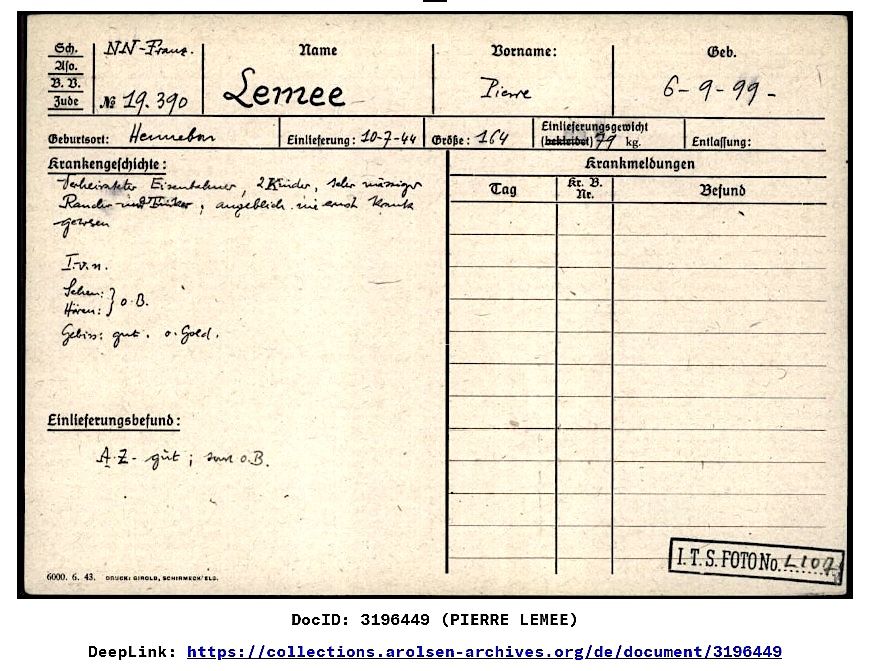 Sch.
Aso.
B. V.
Jude
NN-Franz.
№ 19.390
Name
Lemee
Vorname:
Pierre
Geb.
6-9-99-
Geburtsort: Hennebon
Einlieferung: 10-7-44
Größe: 164
Einlieferungsgewicht
(bekleidet) 79 kg.
Entlassung:
Krankengeschichte:
Verheirateter Eisenbahner, 2 Kinder, sehr mässiger
Raucher und Trinker, angeblich nie ernst krank
gewesen
I.v.n.
Sehen: } o.B.
Hören:
Gebiss: gut. o. Gold.
Einlieferungsbefund:
A.Z- gut; sonst o.B.
Krankmeldungen
Tag
Kr. B.
Nr.
Befund
6000. 6. 43. DRUCK: GIROLD, SCHIRMECK/ELS.
I.T.S. FOTO No.
DocID: 3196449 (PIERRE LEMEE)
DeepLink: https://collections.arolsen-archives.org/de/document/3196449